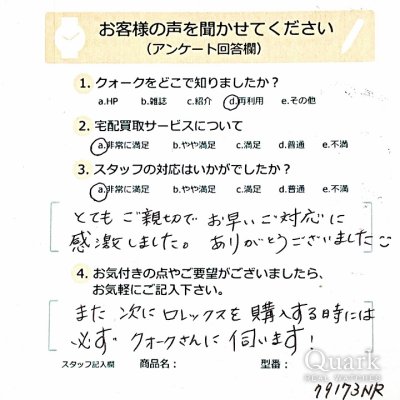 お客様の声を聞かせてください
（アンケート回答欄）
1. クォークをどこで知りましたか？
a.HP b.雑誌 c.紹介 d.再利用 e.その他
2. 宅配買取サービスについて
a.非常に満足 b.やや満足 c.満足 d.普通 e.不満
3. スタッフの対応はいかがでしたか？
a.非常に満足 b.やや満足 c.満足 d.普通 e.不満
とても ご親切で お早いご対応に
感激しました。 ありがとうございました
4. お気付きの点やご要望がございましたら、
お気軽にご記入下さい。
また 次に ロレックスを 購入する時には
必ず クォークさんに 伺います！
スタッフ記入欄 商品名： 型番：
Quark
REAL WATCHES
79173NR